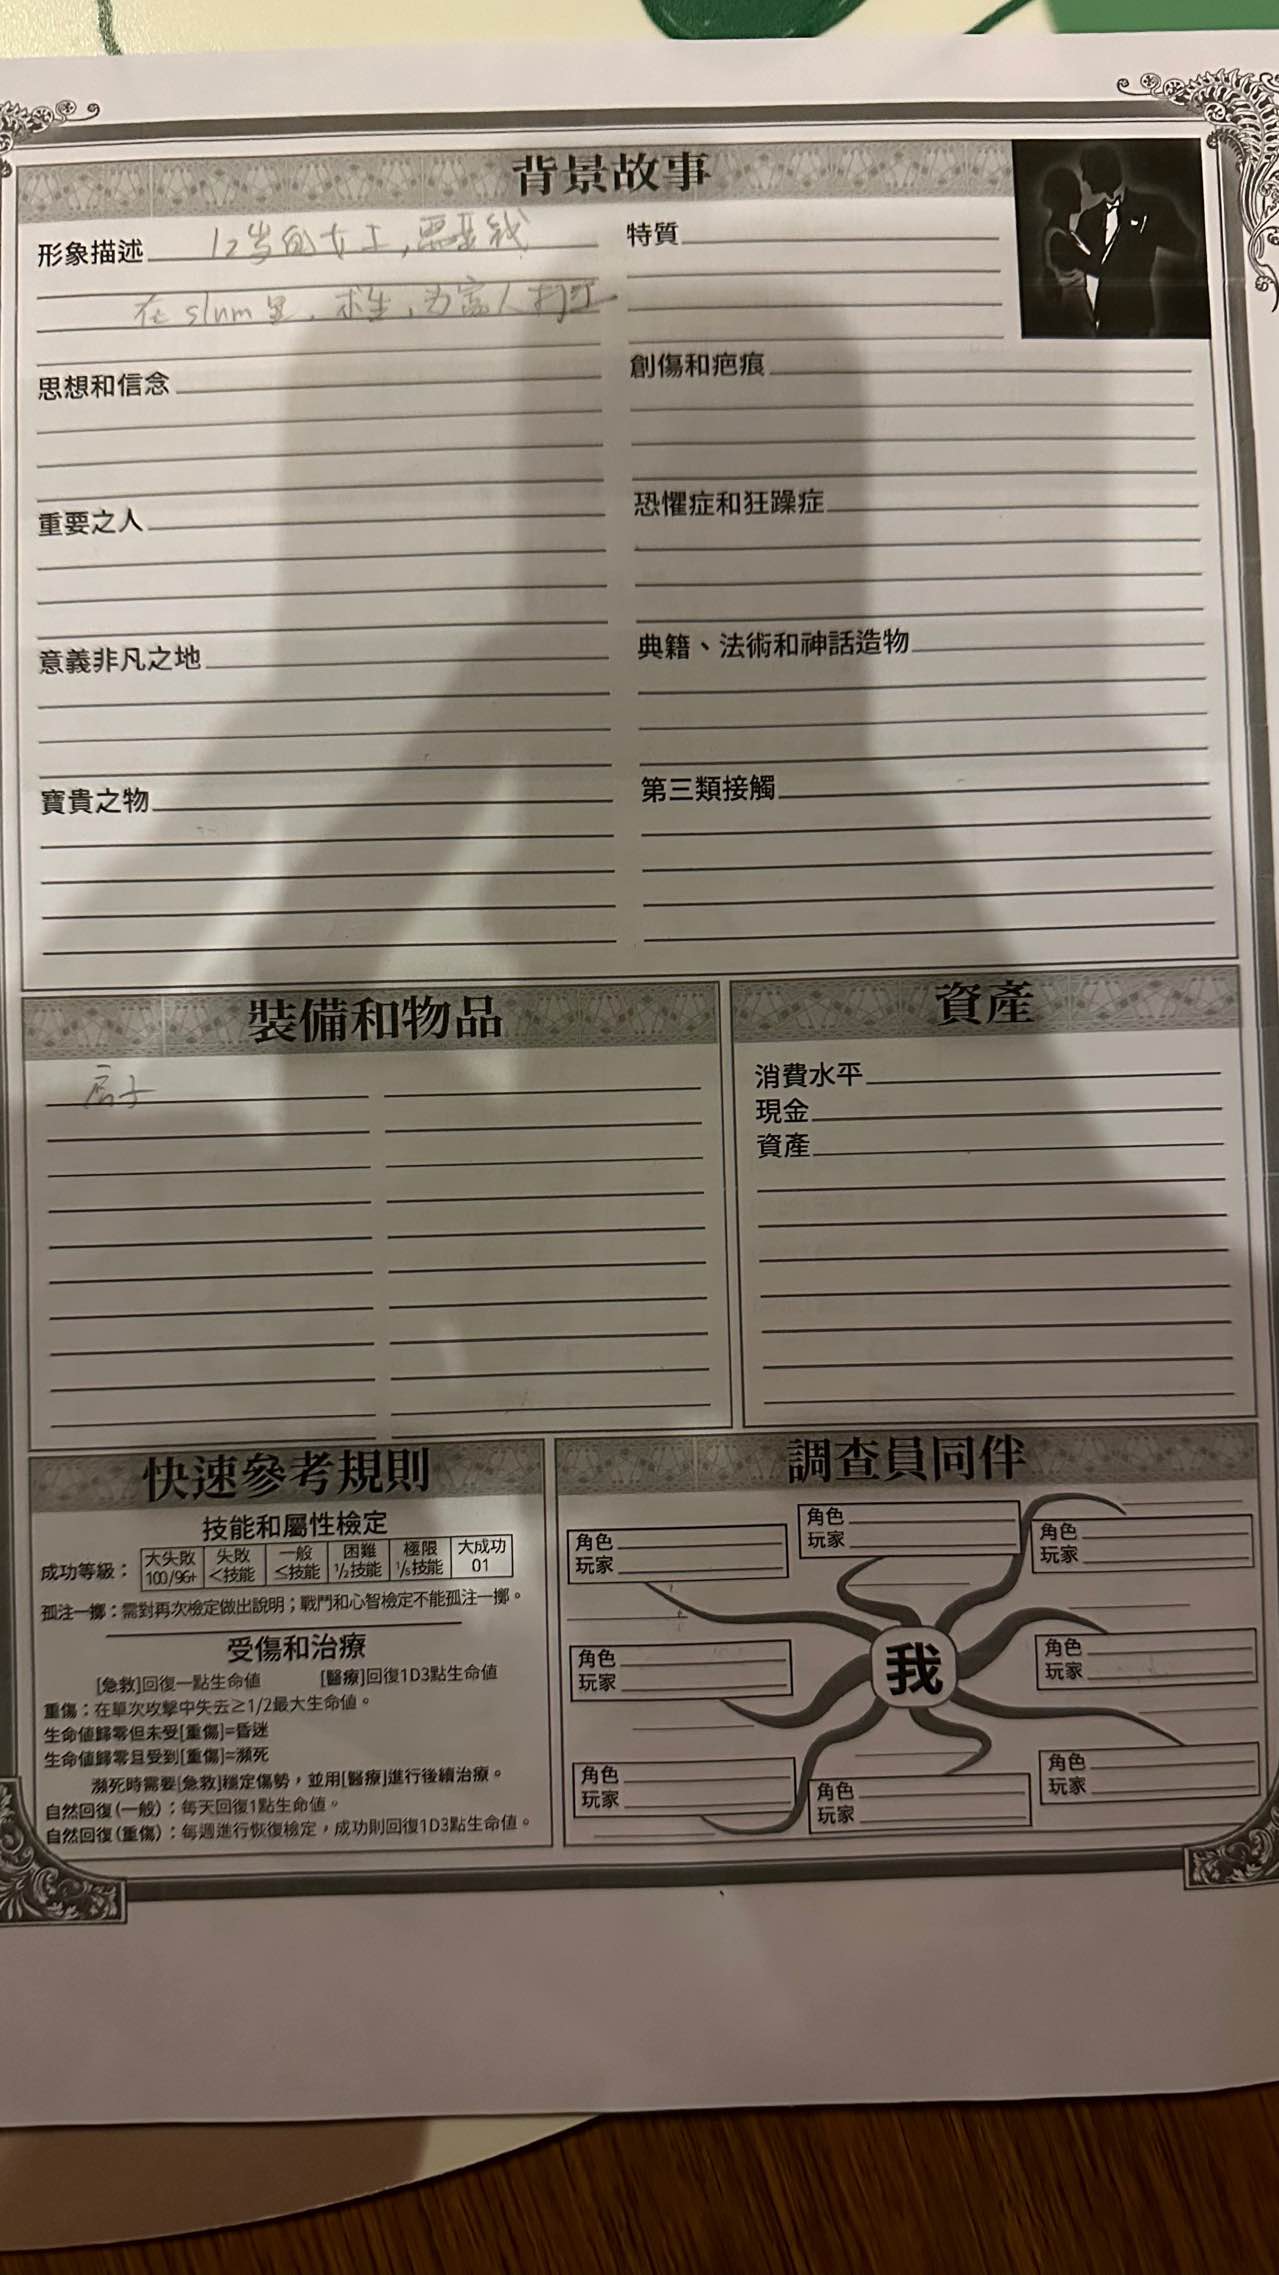 背景故事
形象描述 12岁的女工,
在 slum 里, 求生, 为家人打工
思想和信念
重要之人
意義非凡之地
寶貴之物
特質
創傷和疤痕
恐懼症和狂躁症
典籍、法術和神話造物
第三類接觸
裝備和物品
房子
資產
消費水平
現金
資產
快速參考規則
技能和屬性檢定
成功等級：
大失敗 失敗 一般 困難 極限 大成功
100/96+ <技能 ≤技能 1/2技能 1/5技能 01
孤注一擲：需對再次檢定做出說明；戰鬥和心智檢定不能孤注一擲。
受傷和治療
[急救]回復一點生命值 [醫療]回復1D3點生命值
重傷：在單次攻擊中失去≥1/2最大生命值。
生命值歸零但未受[重傷]=昏迷
生命值歸零且受到[重傷]=瀕死
瀕死時需要[急救]穩定傷勢，並用[醫療]進行後續治療。
自然回復(一般)：每天回復1點生命值。
自然回復(重傷)：每週進行恢復檢定，成功則回復1D3點生命值。
調查員同伴
角色
玩家
角色
玩家
角色
玩家
角色
玩家
我
角色
玩家
角色
玩家
角色
玩家
角色
玩家